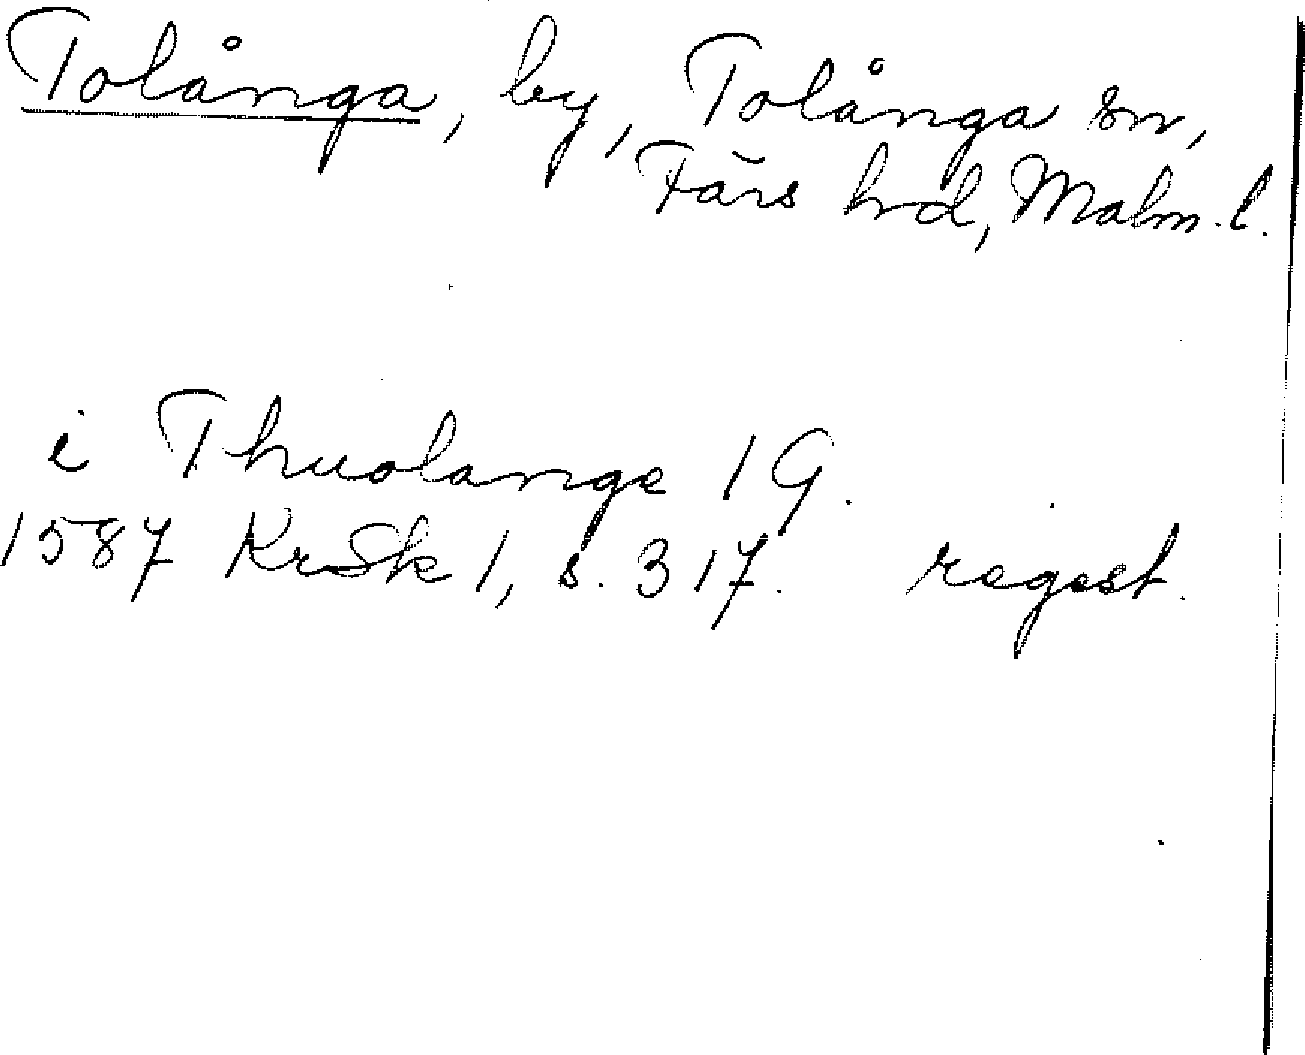 Tolånga, by, Tolånga sn,
Färs hd, Malm. l.
i Thuolange 1 G.
1587 KrSk 1, s. 317. regest.